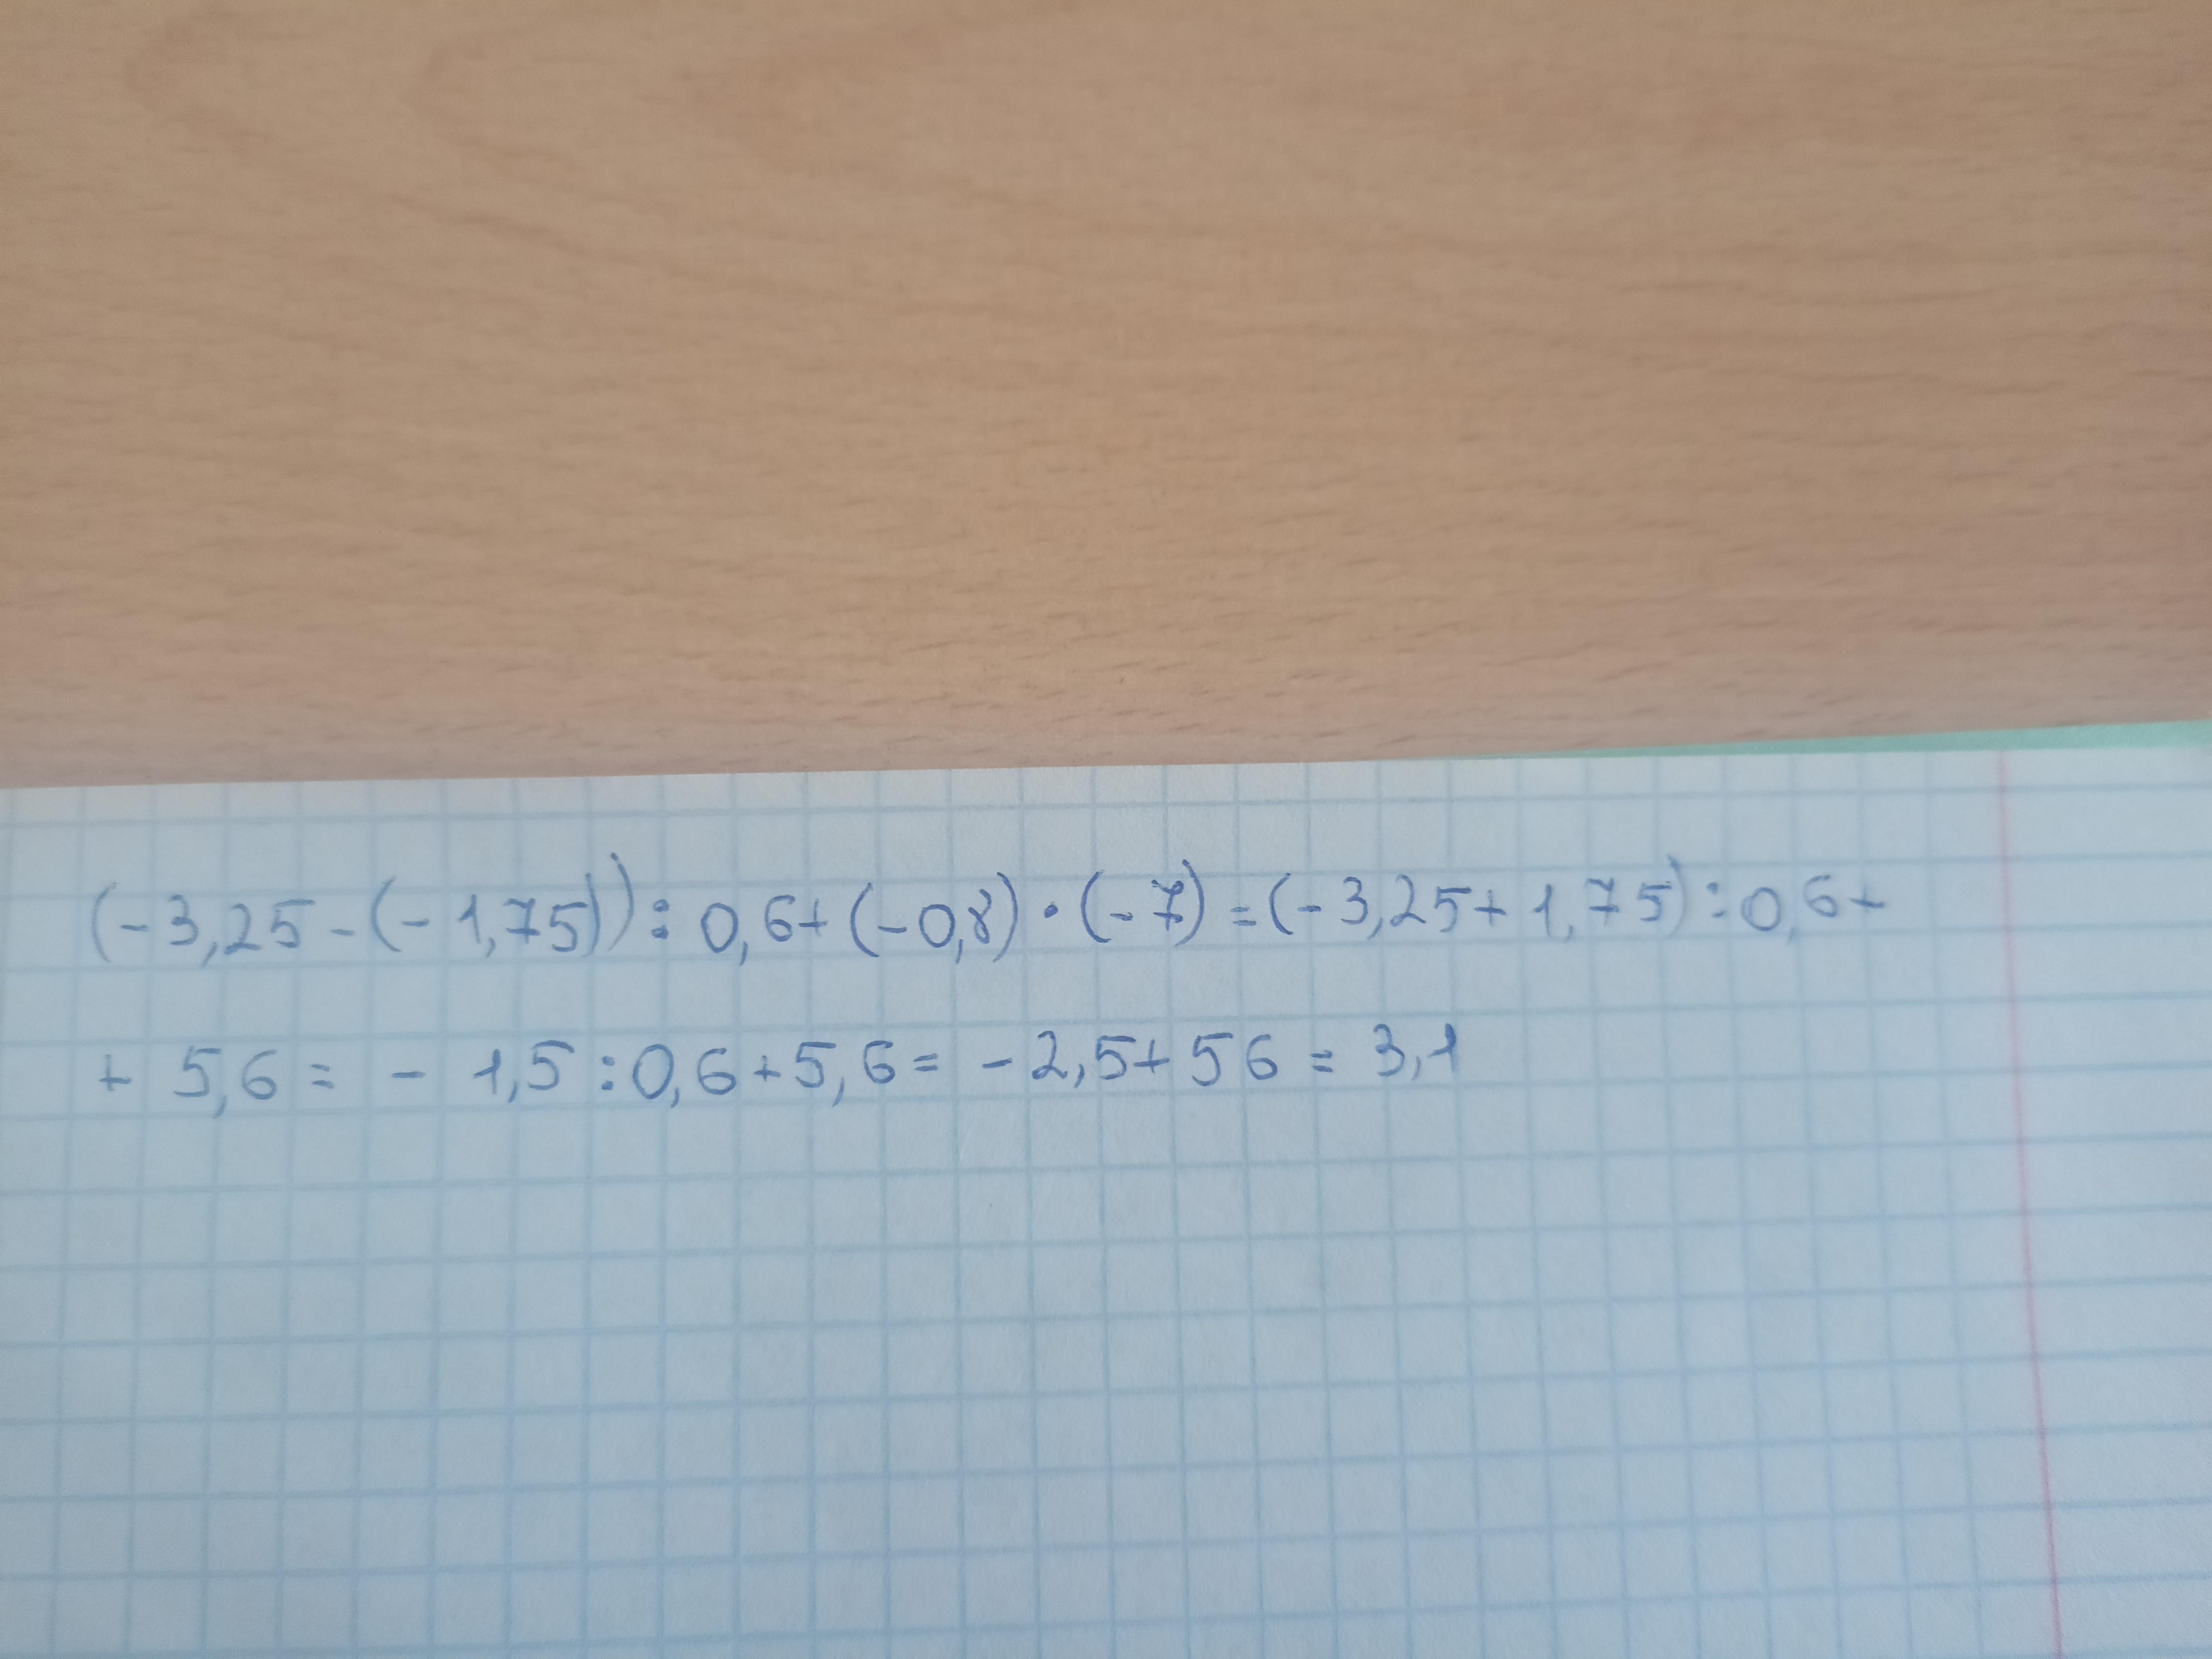 (-3,25-(-1,75)):0,6+(-0,8)·(-7)=(-3,25+1,75):0,6+
+ 5,6= - 1,5:0,6+5,6= -2,5+56 = 3,1